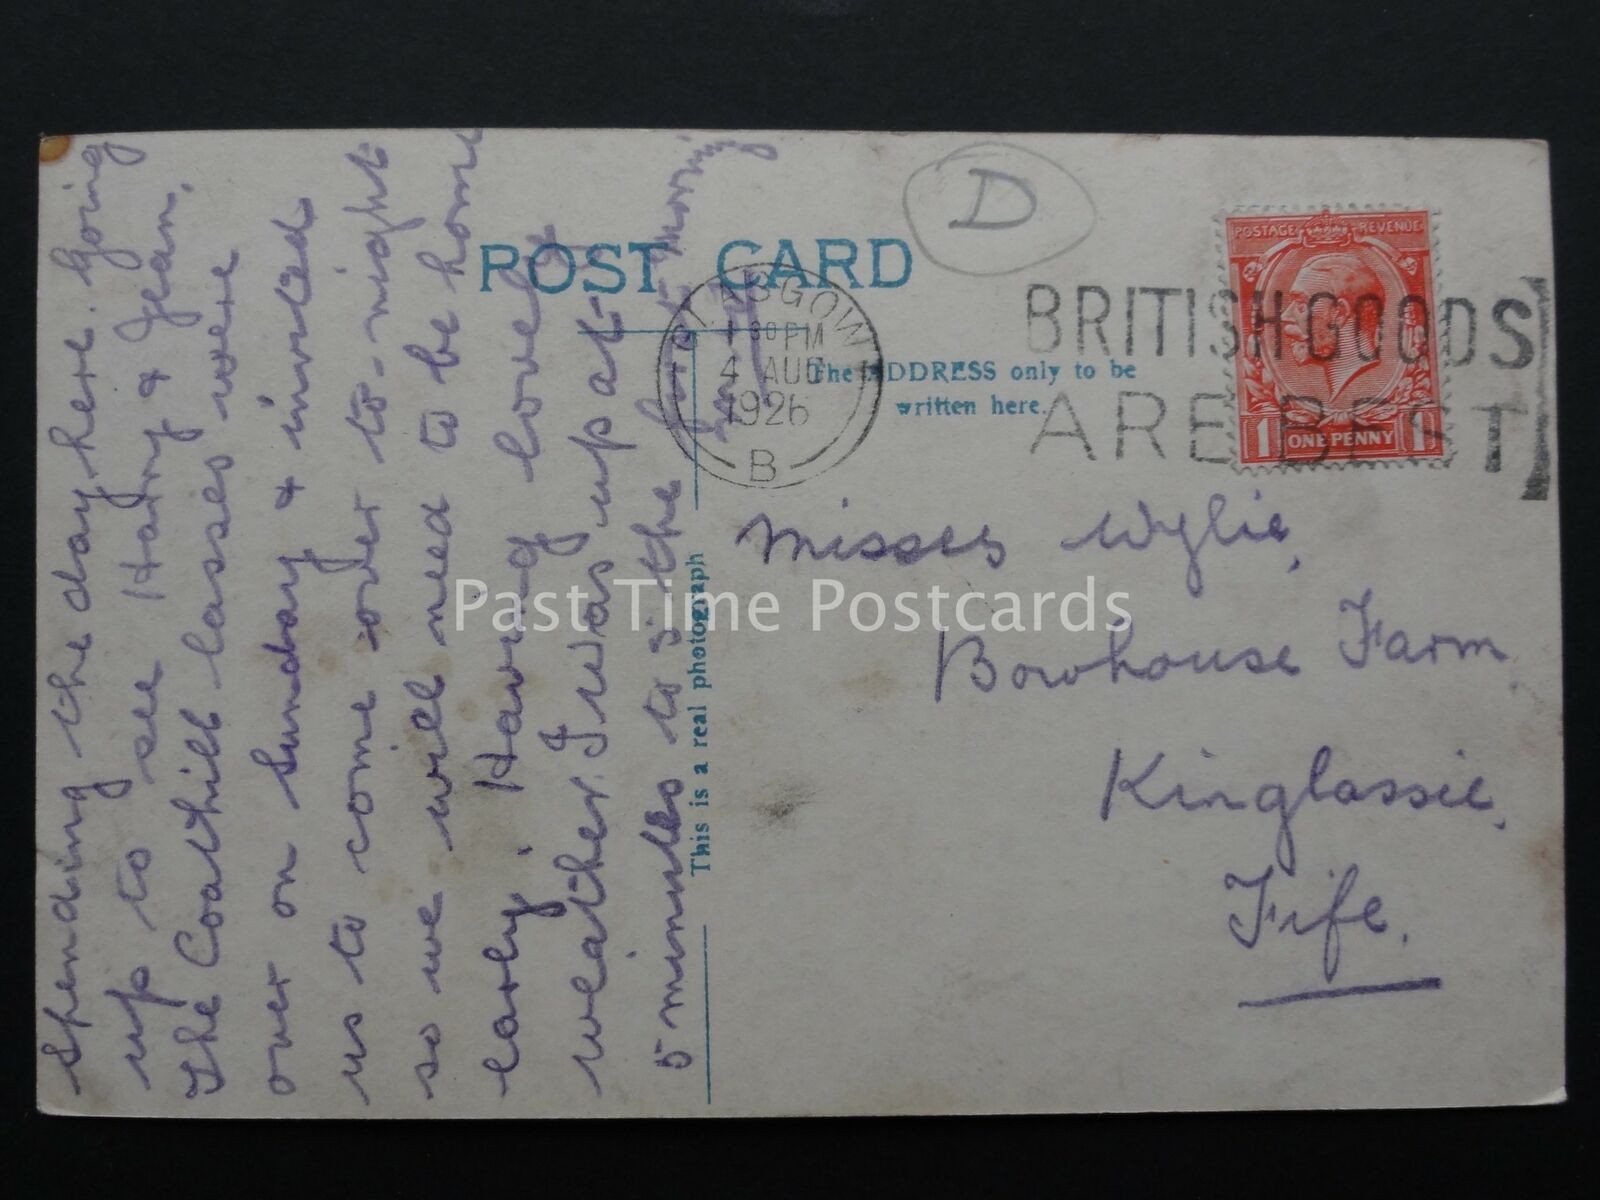 POST CARD
D
GLASGOW
1 30 PM
4 AUG
1926
B
BRITISH GOODS
ARE BEST
POSTAGE REVENUE
1 ONE PENNY 1
The ADDRESS only to be
written here.
This is a real photograph
Spending the day here. Going
up to see Harry & Jean.
The Coathill lasses were
over on Sunday & invited
us to come over to-night
so we will need to be home
early. Having lovely
weather. I was up at
5 minutes to 5 the
morning
Misses Wylie,
Bowhouse Farm,
Kinglassie,
Fife.
Past Time Postcards